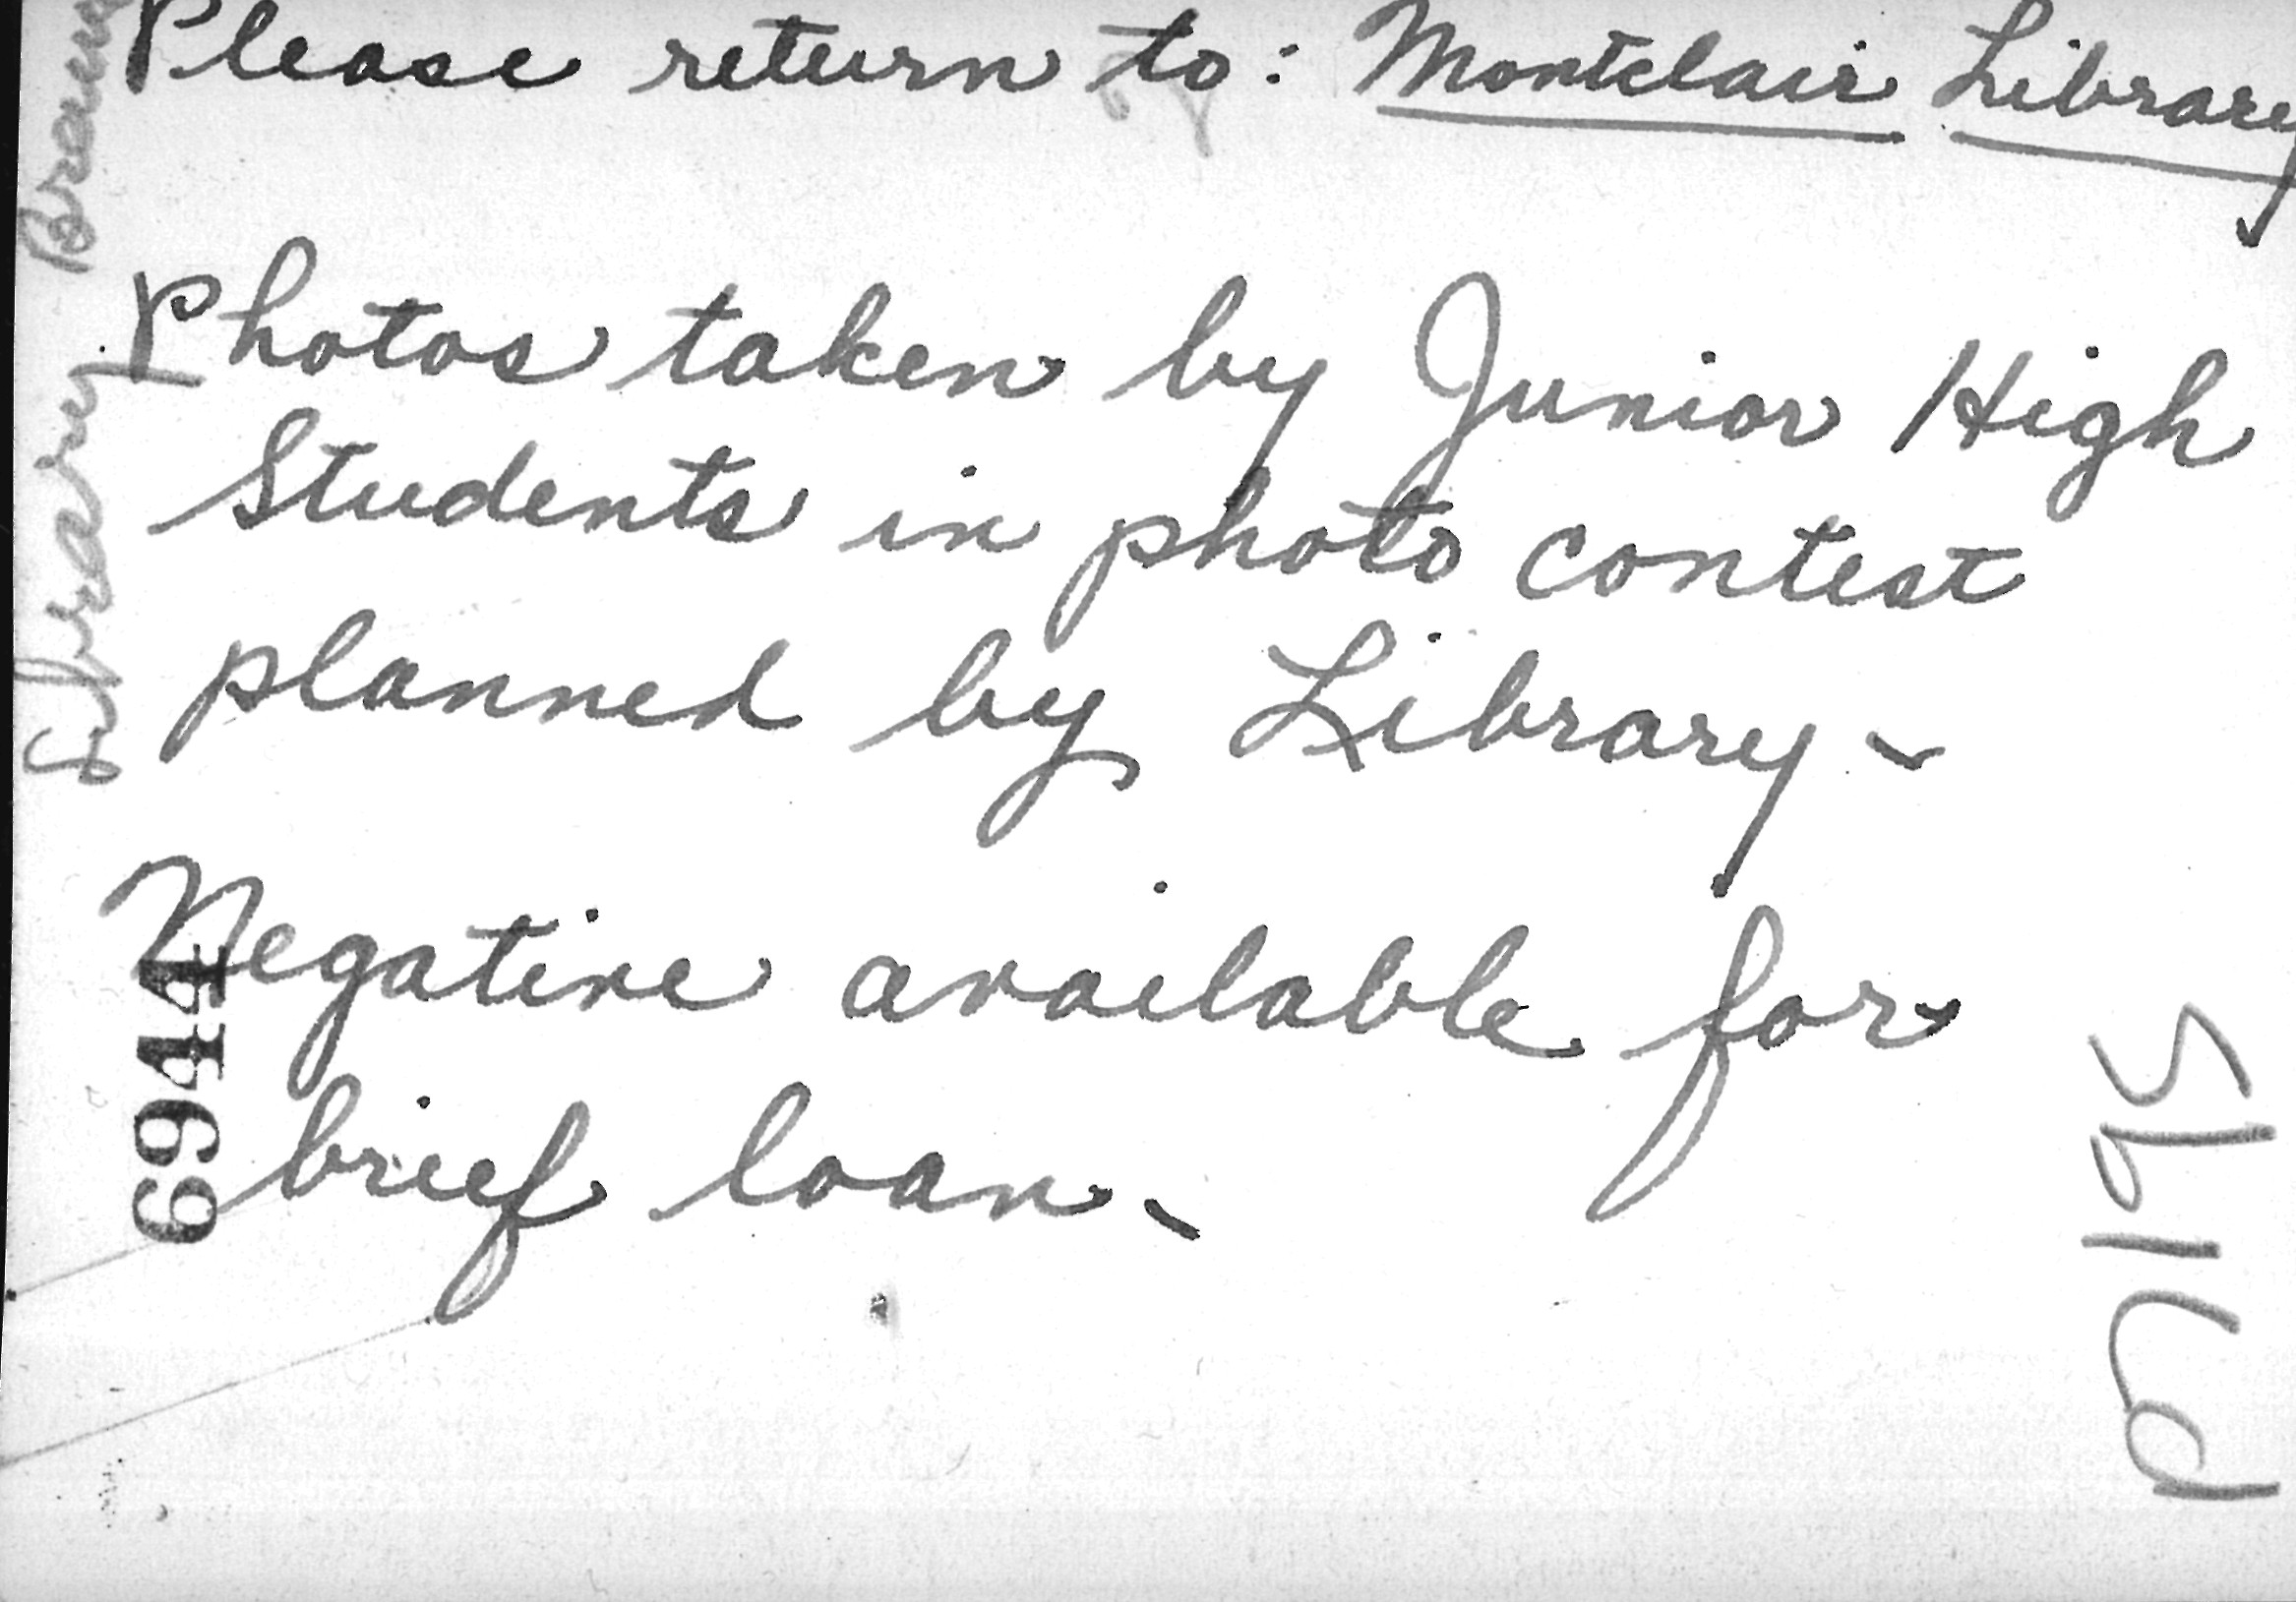 Please return to: Montclair Library
Photos taken by Junior High
Students in photo contest
planned by Library -
Negative available for
brief loan -
Library
69444